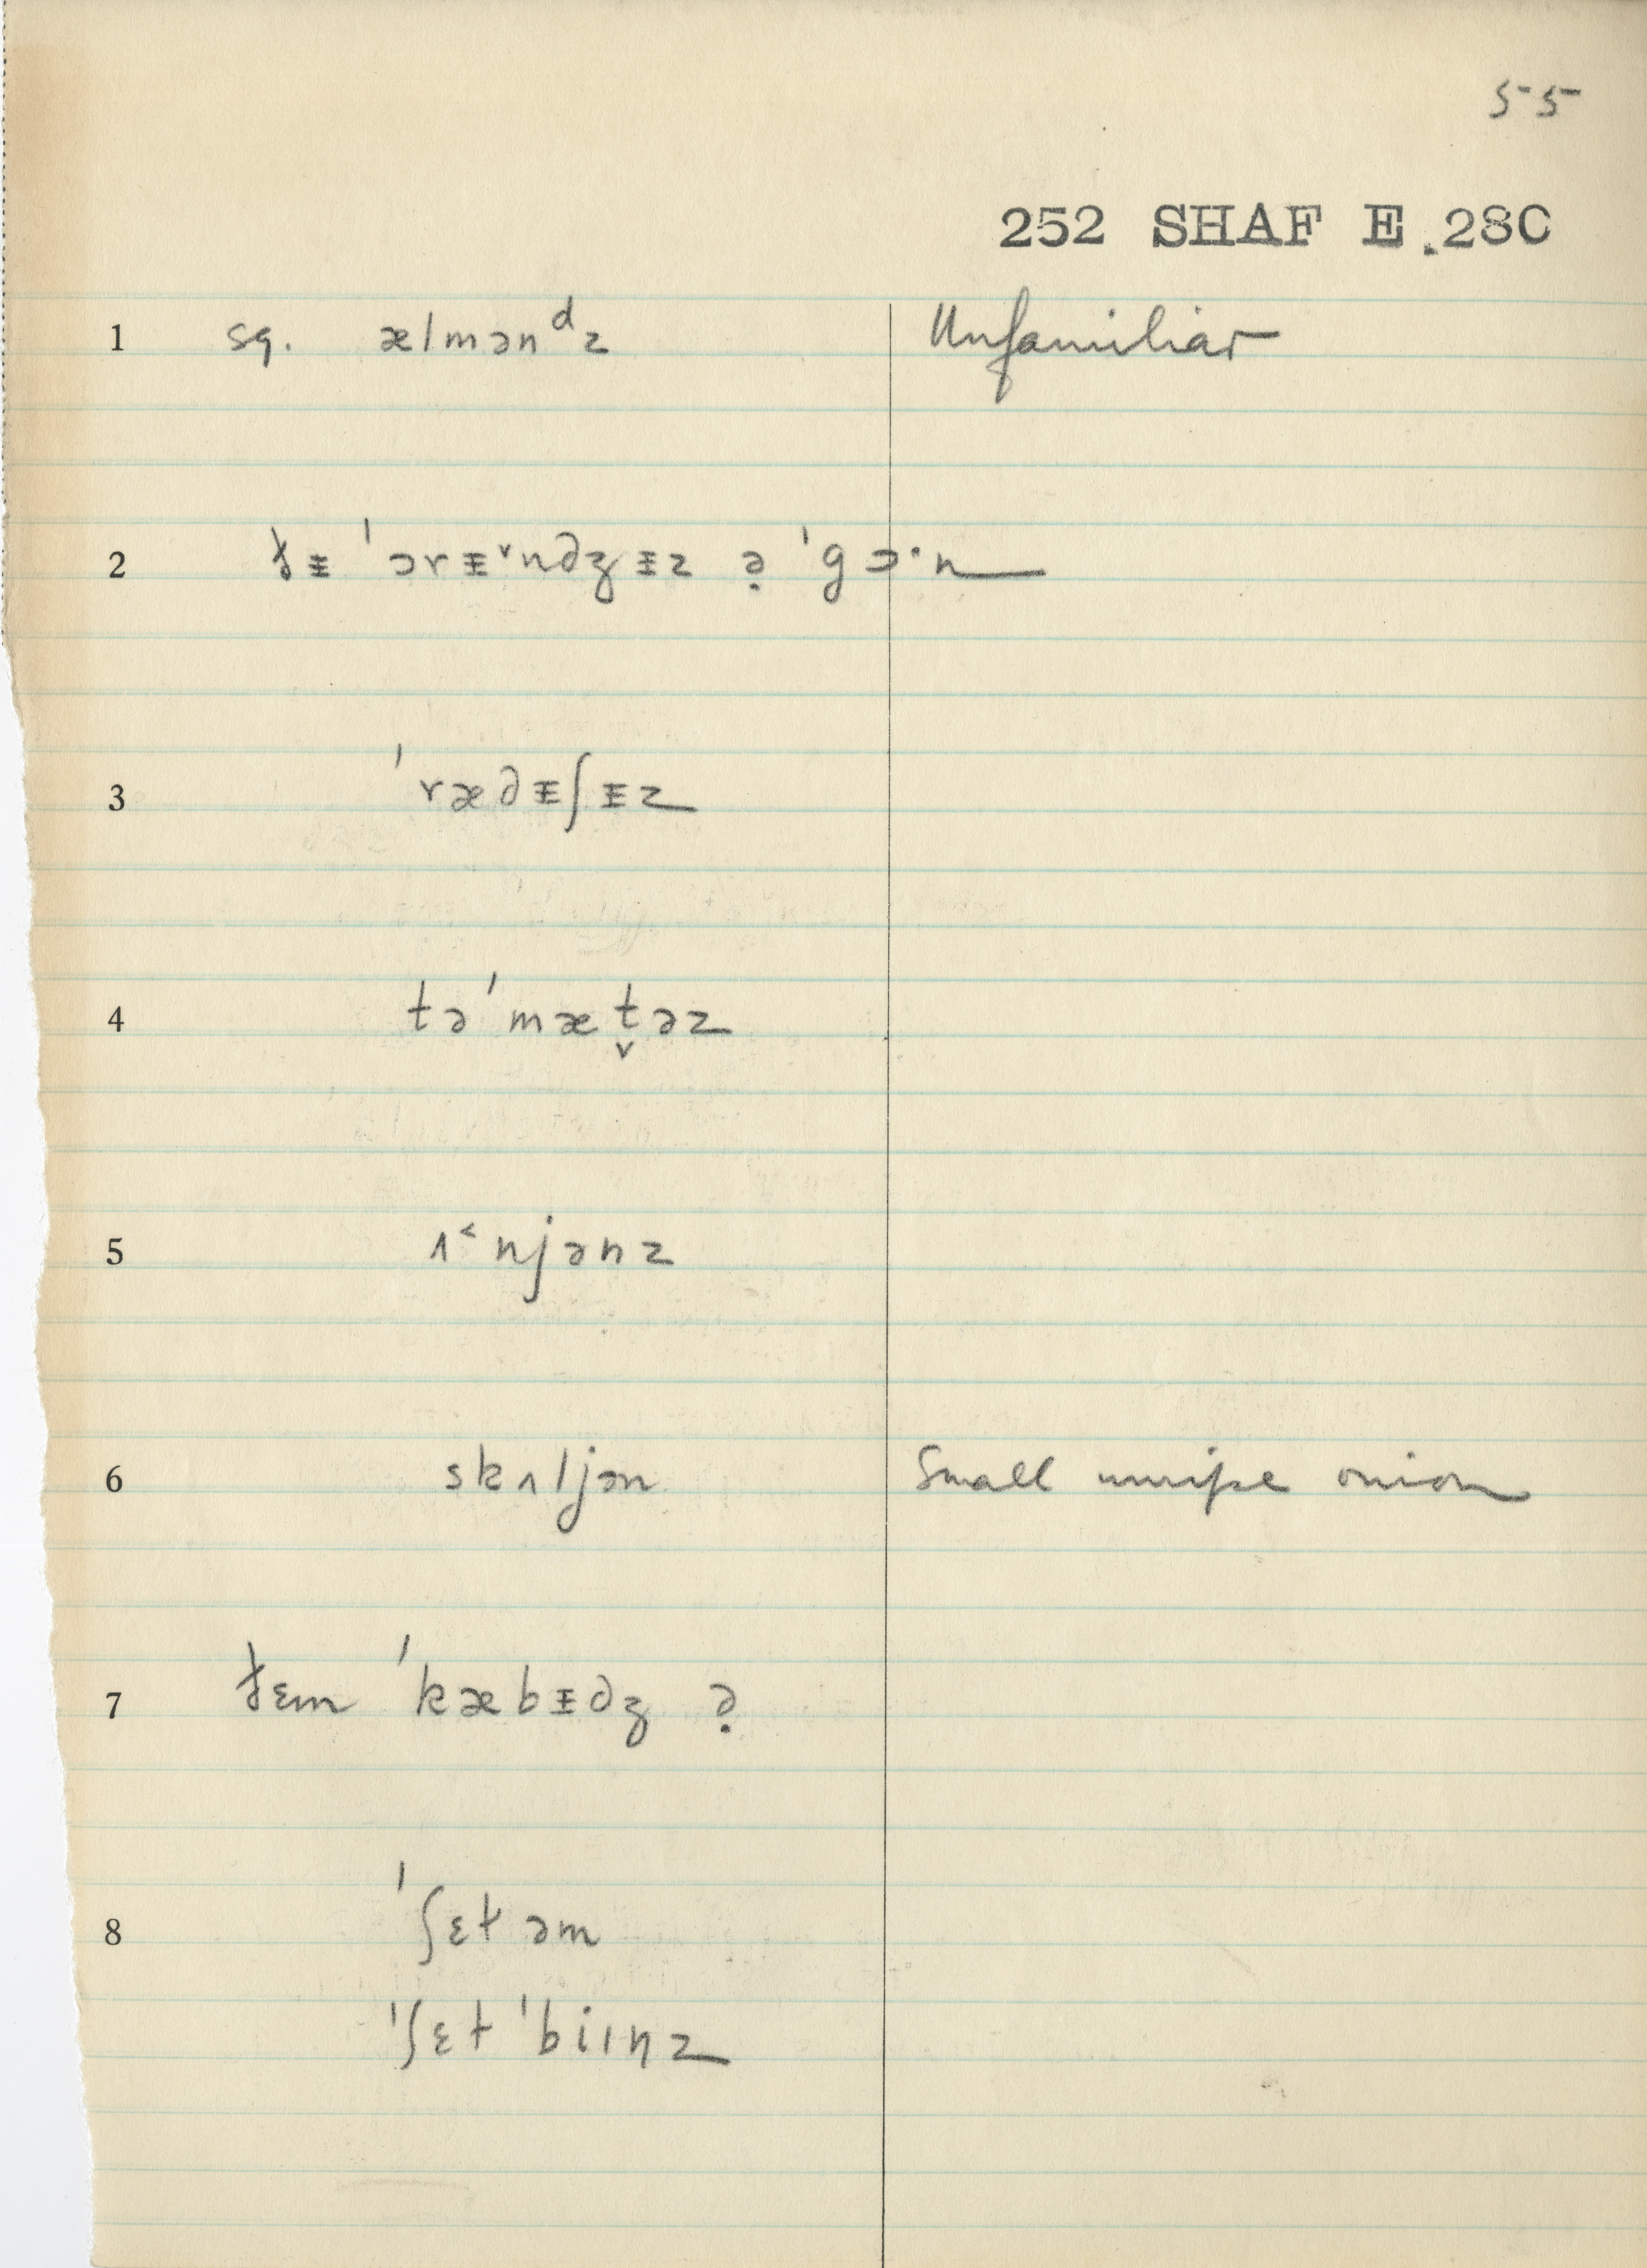 55
252 SHAF E.28C
1 sq. ælmənᵈz Unfamiliar
2 ðᵻ ˈɔrᵻ˅ndʒᵻz ə̣ ˈgɔ·n
3 ˈrædᵻʃᵻz
4 təˈmæt̬əz
5 ʌ˂njənz
6 skʌljən Small unripe onion
7 ðɛm ˈkæbᵻdʒ ə̣
8 ˈʃɛt əm
ˈʃɛt ˈbiɪnz